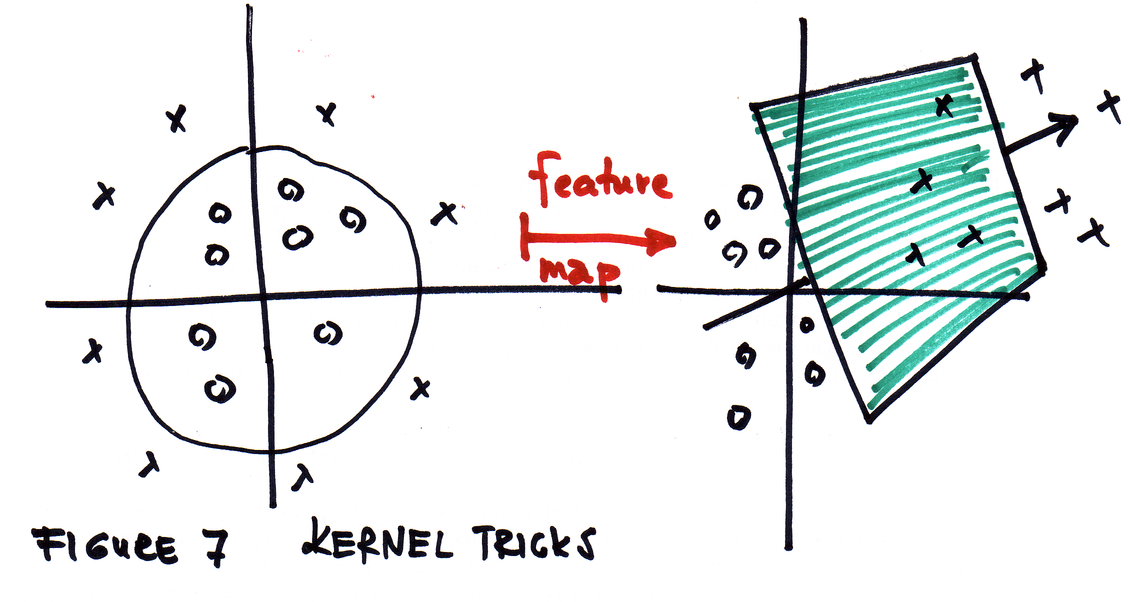 feature
map
FIGURE 7 KERNEL TRICKS